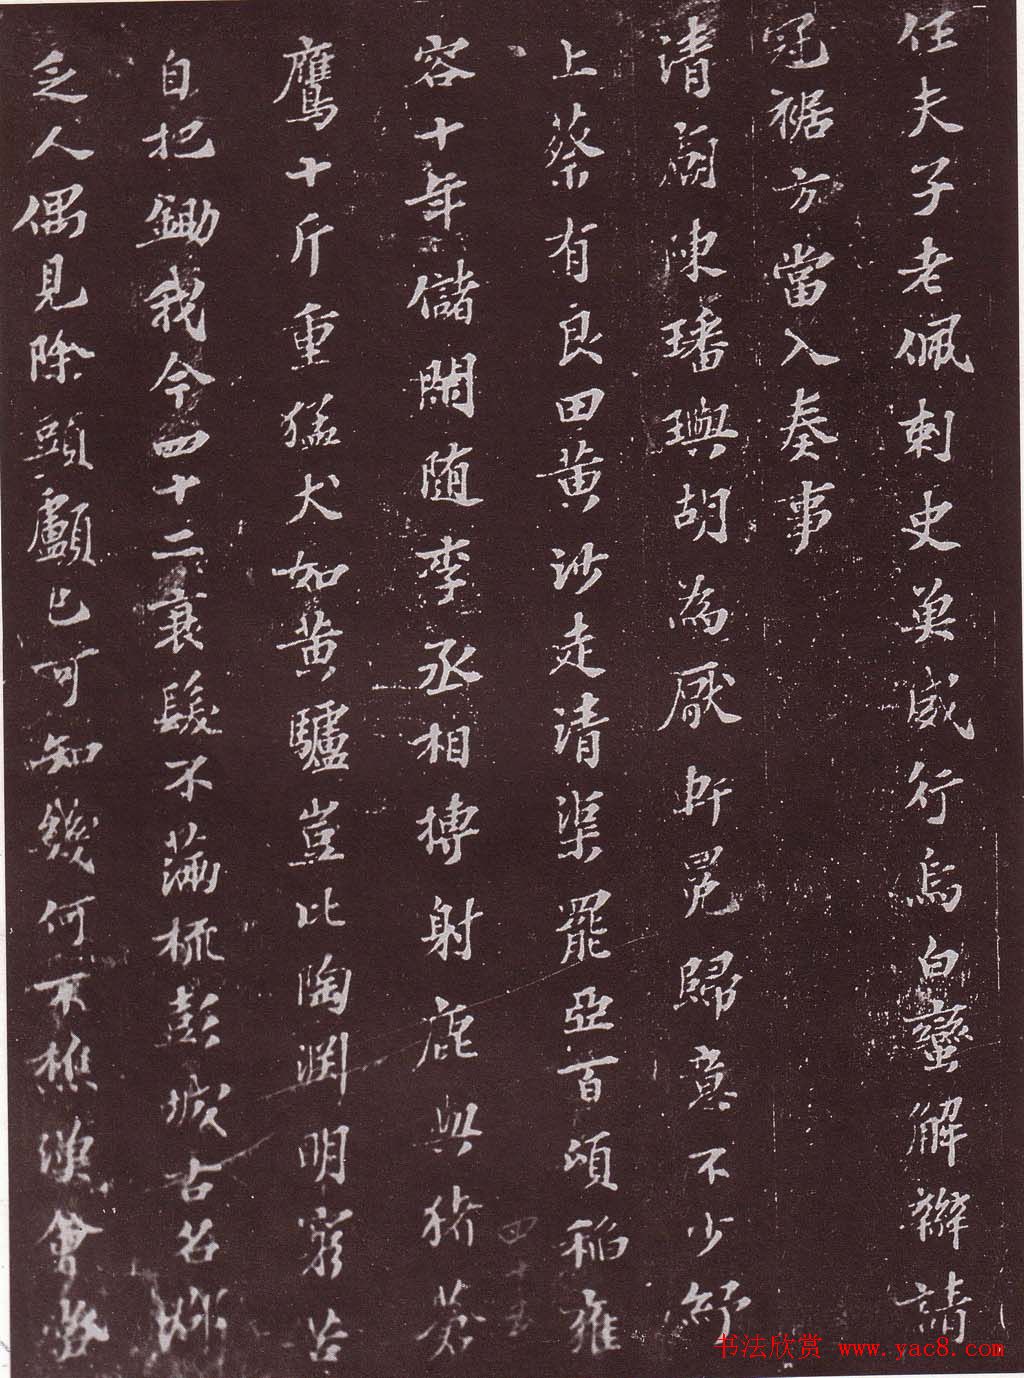 任夫子老佩刺史魚威行烏白蠻解辮請
冠裾方當入奏事
清廟陳璠璵胡為厭軒冕歸意不少紓
上蔡有良田黃沙走清渠罷亞百頃稻雍
容十年儲閑随李丞相搏射鹿與猪蒼
鷹十斤重猛犬如黃驢豈比陶淵明窮苦
自把鋤我今四十二衰髮不滿梳彭城古名郡
乏人偶見除頭顱已可知幾何不樵漁會當
书法欣赏 www.yac8.com